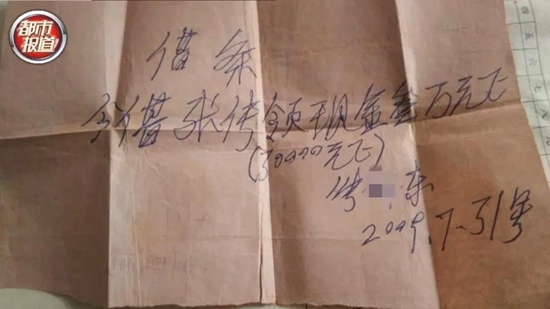 都市
报道
借条
今借张传领现金叁万元正
(30000元正)
东
2009.7-31号